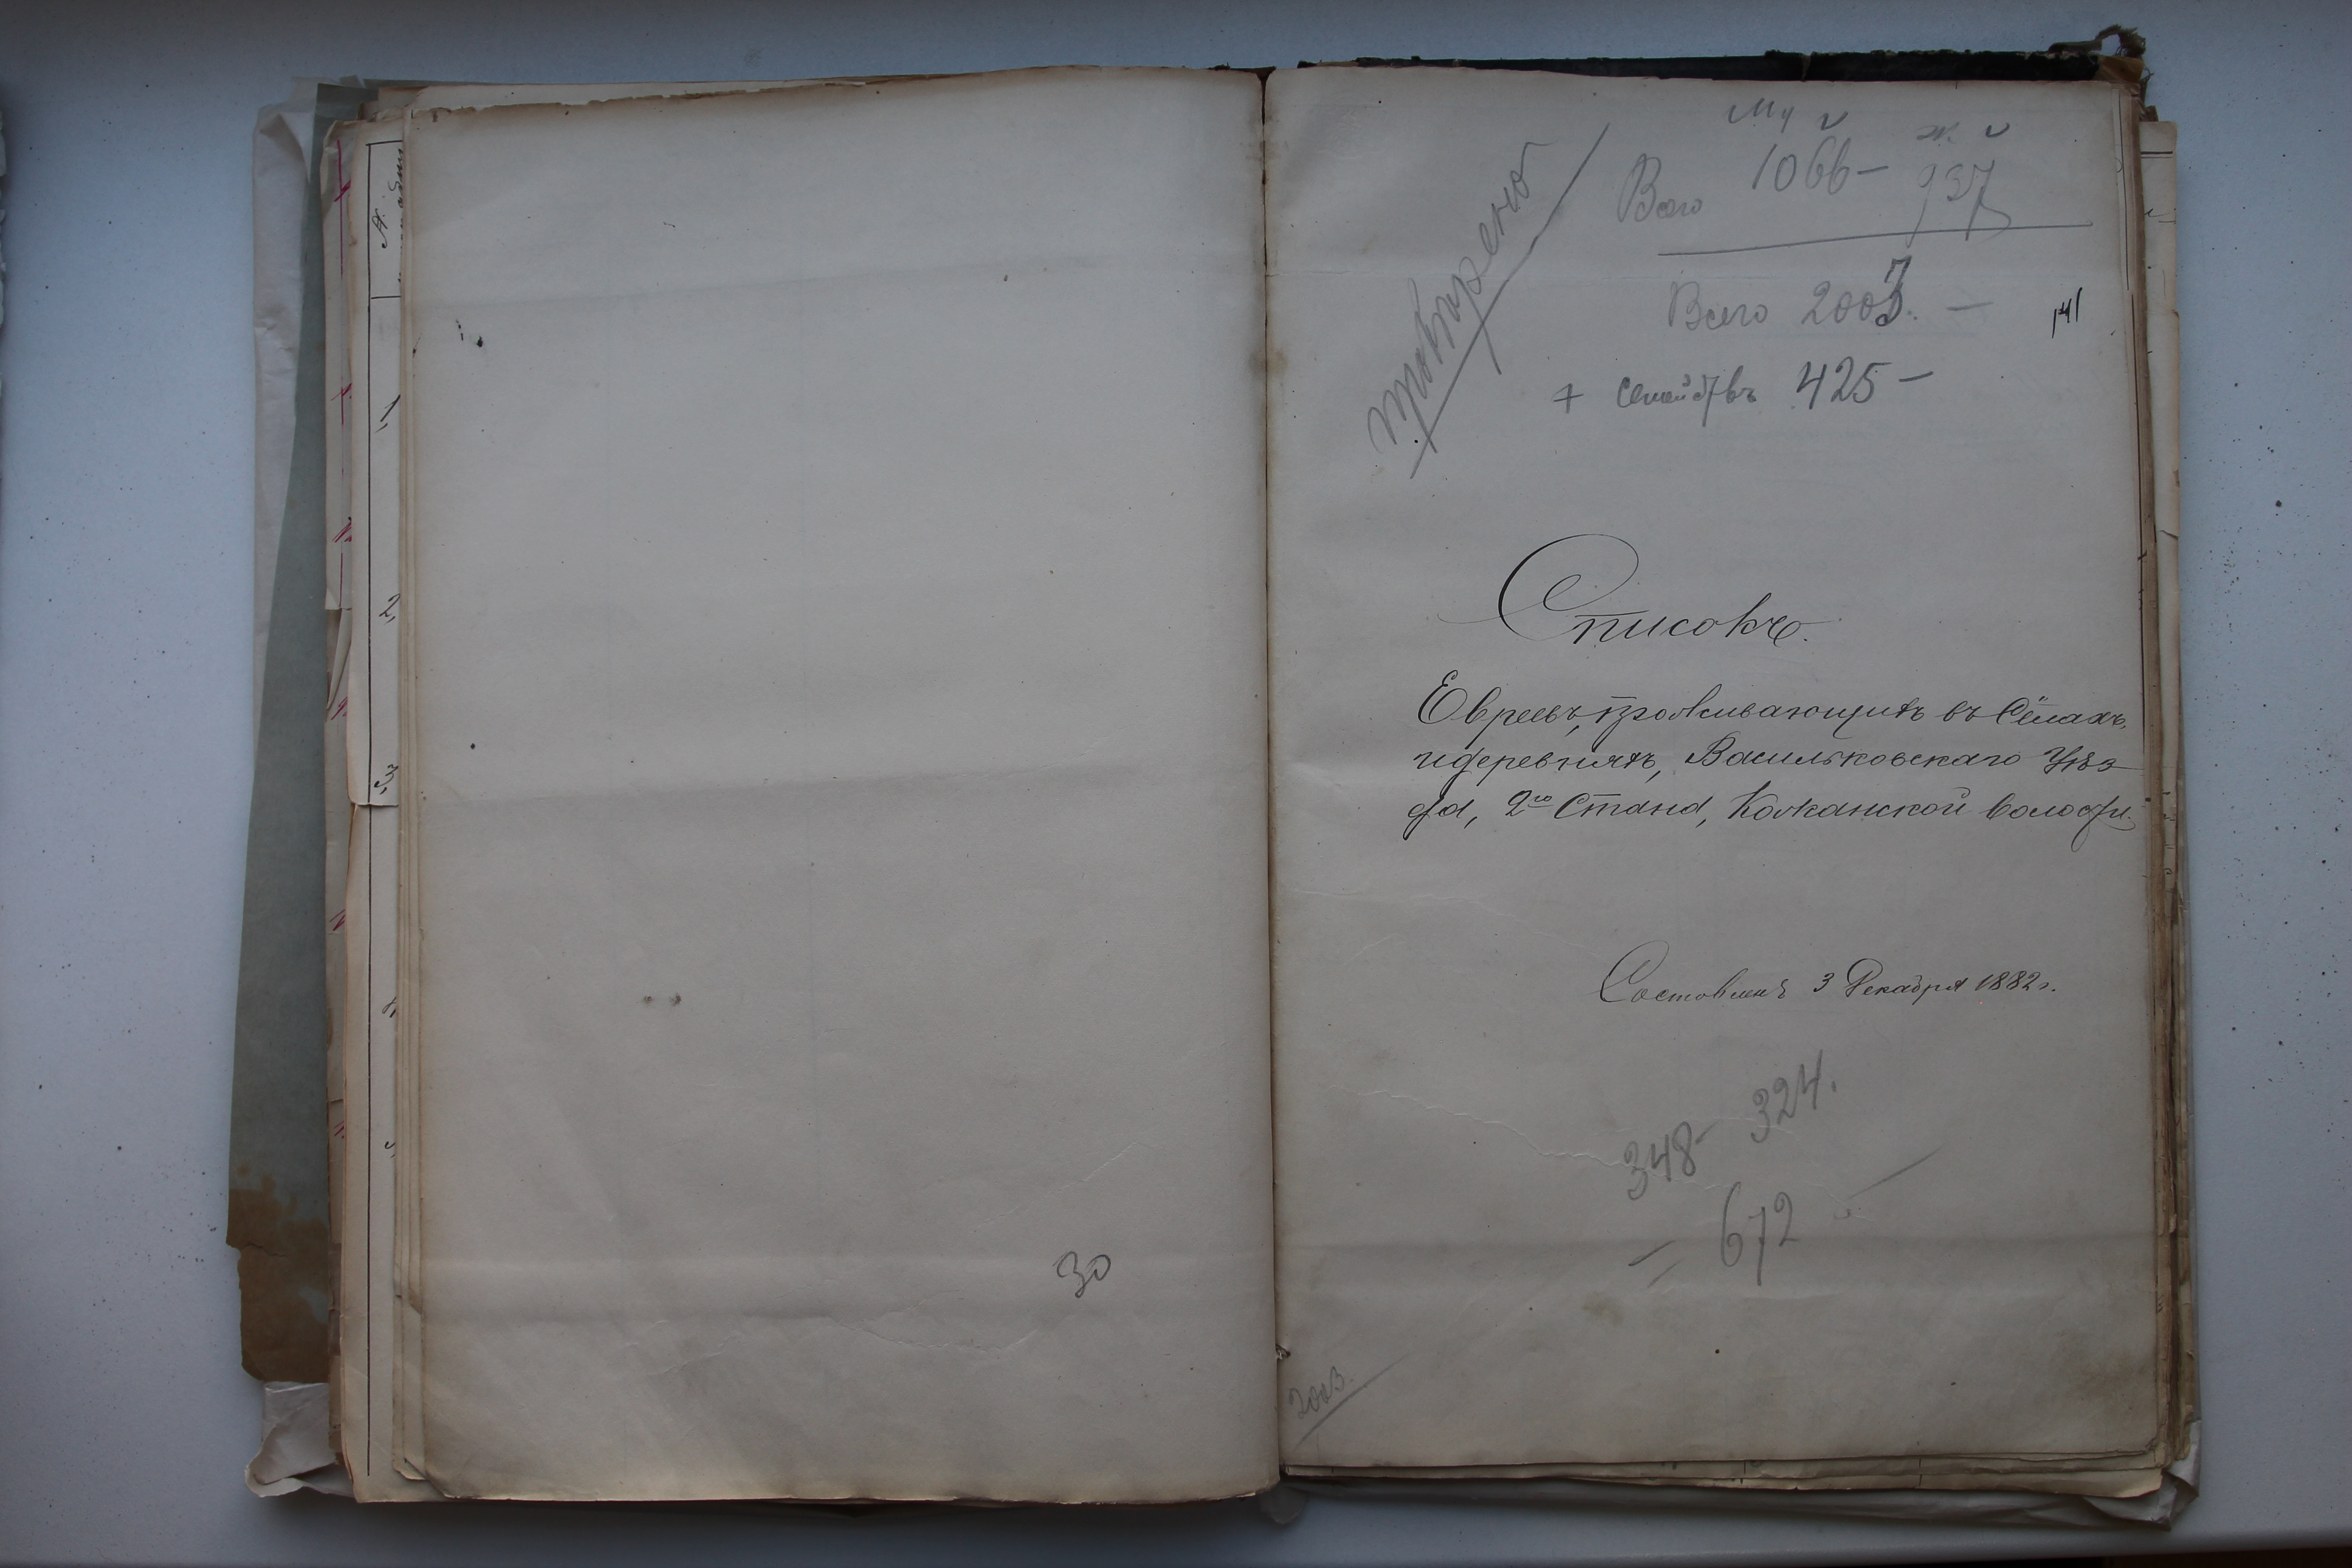 30
Му ж.
Всего 1066 — 937
Всего 2003. —
141
+ Семействъ 425 —
провѣрено
Списокъ.
Евреевъ, проживающихъ въ Сёлахъ,
и деревняхъ, Васильковскаго Уѣз-
да, 2го Стана, Кожанской волости.
Составленъ 3 Декабря 1882 г.
348 — 324.
— 672 —
2003.